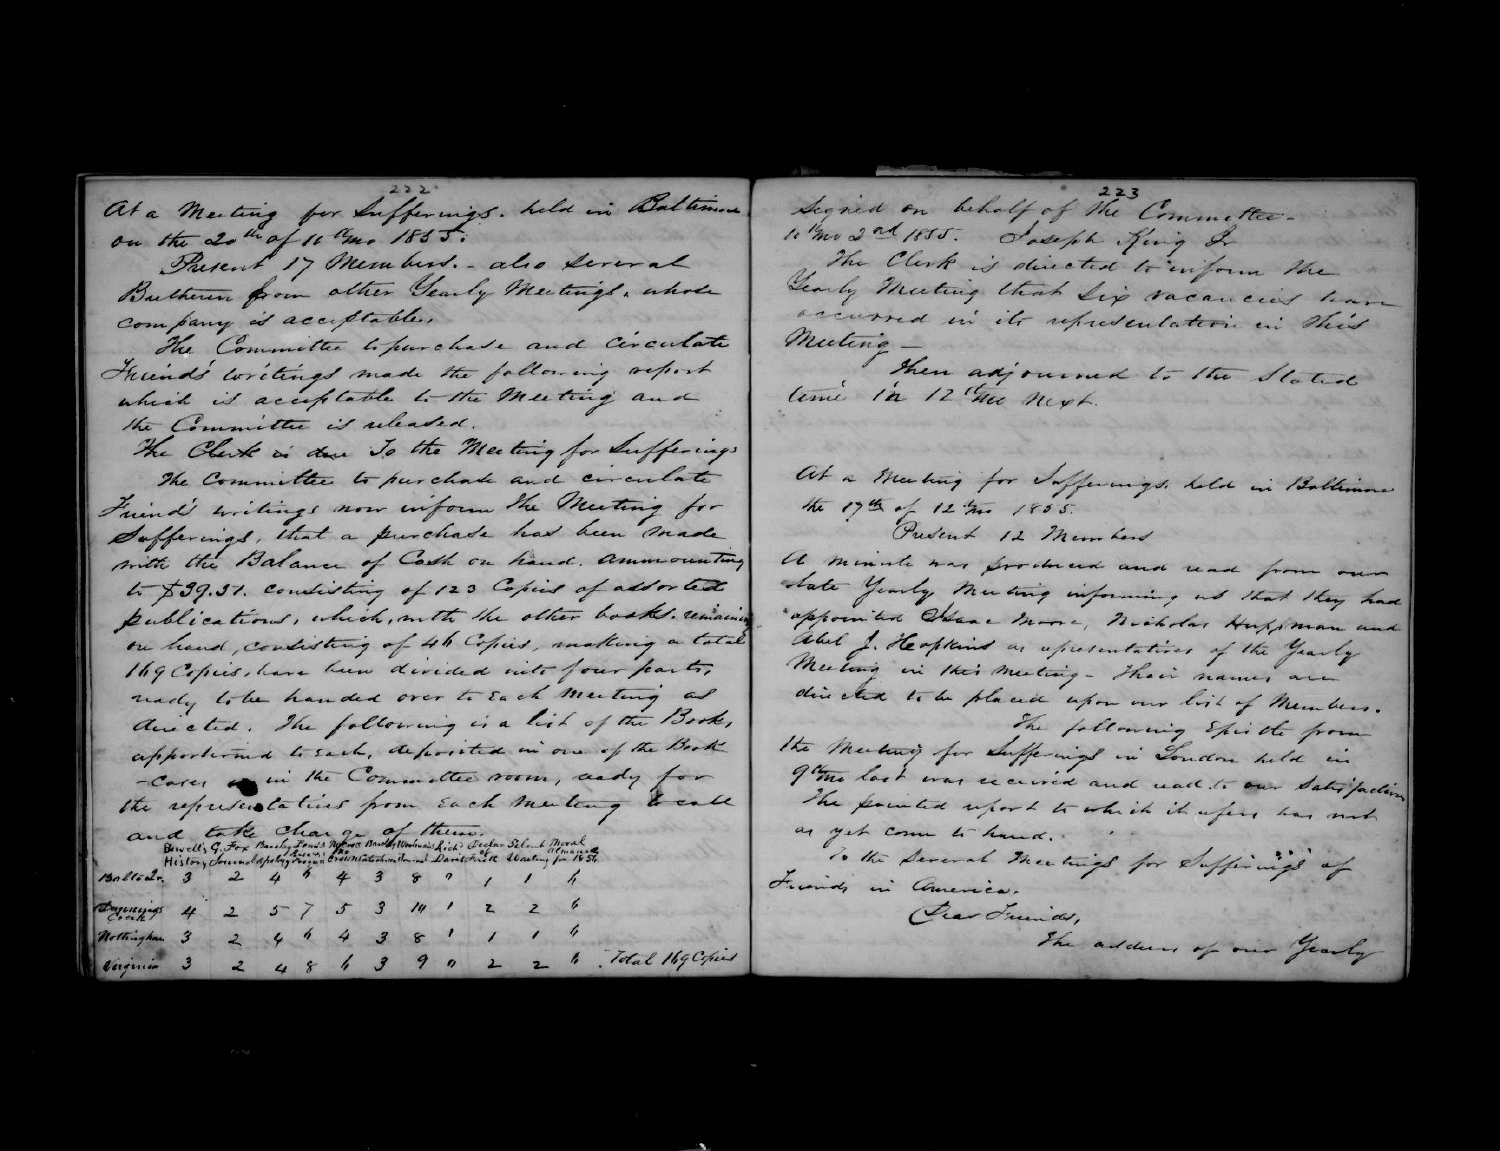 222
At a Meeting for Sufferings. held in Baltimore
on the 20th of 10th Mo 1855.
Present 17 Members. - also several
Bretheren from other Yearly Meetings, whose
company is acceptable.
The Committee to purchase and circulate
Friends' writings made the following report
which is acceptable to the Meeting and
the Committee is released.
The Clerk is To the Meeting for Sufferings
The Committee to purchase and circulate
Friends' writings now inform the Meeting for
Sufferings, that a purchase has been made
with the Balance of Cash on hand. ammounting
to $39.37. consisting of 123 Copies of assorted
publications, which, with the other books. remaining
on hand, consisting of 46 Copies, making a total
169 Copies, have been divided into four parts,
ready to be handed over to Each Meeting as
directed. The following is a list of the Books,
apportioned to Each, deposited in one of the Book
-cases in the Committee room, ready for
the representatives from Each Meeting to call
and take charge of them.
Sewell's G. Fox Barclay Bonds Barclay Rich Silent Moral
History Journal Apology Davis Waiting Almanack for 1856
Balto Qr. 3 2 4 6 4 3 8 " 1 1 6
Dunnings Creek 4 2 5 7 5 3 10 1 2 2 6
Nottingham 3 2 4 6 4 3 8 1 1 1 6
Virginia 3 2 4 8 6 3 9 " 2 2 6 Total 169 Copies
223
Signed on behalf of the Committee -
10th Mo 2nd 1855. Joseph King Jr
The Clerk is directed to inform the
Yearly Meeting that six vacancies have
occurred in its representation in this
Meeting -
Then adjourned to the Stated
time in 12th Mo next.
At a Meeting for Sufferings. held in Baltimore
the 17th of 12th Mo 1855.
Present 12 Members
A minute was produced and read from our
late Yearly Meeting informing us that they had
appointed Isaac Moore, Nicholas Huppman and
Abel J. Hopkins as representatives of the Yearly
Meeting in this Meeting - Their names are
directed to be placed upon our list of Members.
The following Epistle from
the Meeting for Sufferings in London held in
9th Mo last was received and read to our Satisfaction
The printed report to which it refers has not
as yet come to hand.
To the Several Meetings for Sufferings of
Friends in America.
Dear Friends,
The address of our Yearly